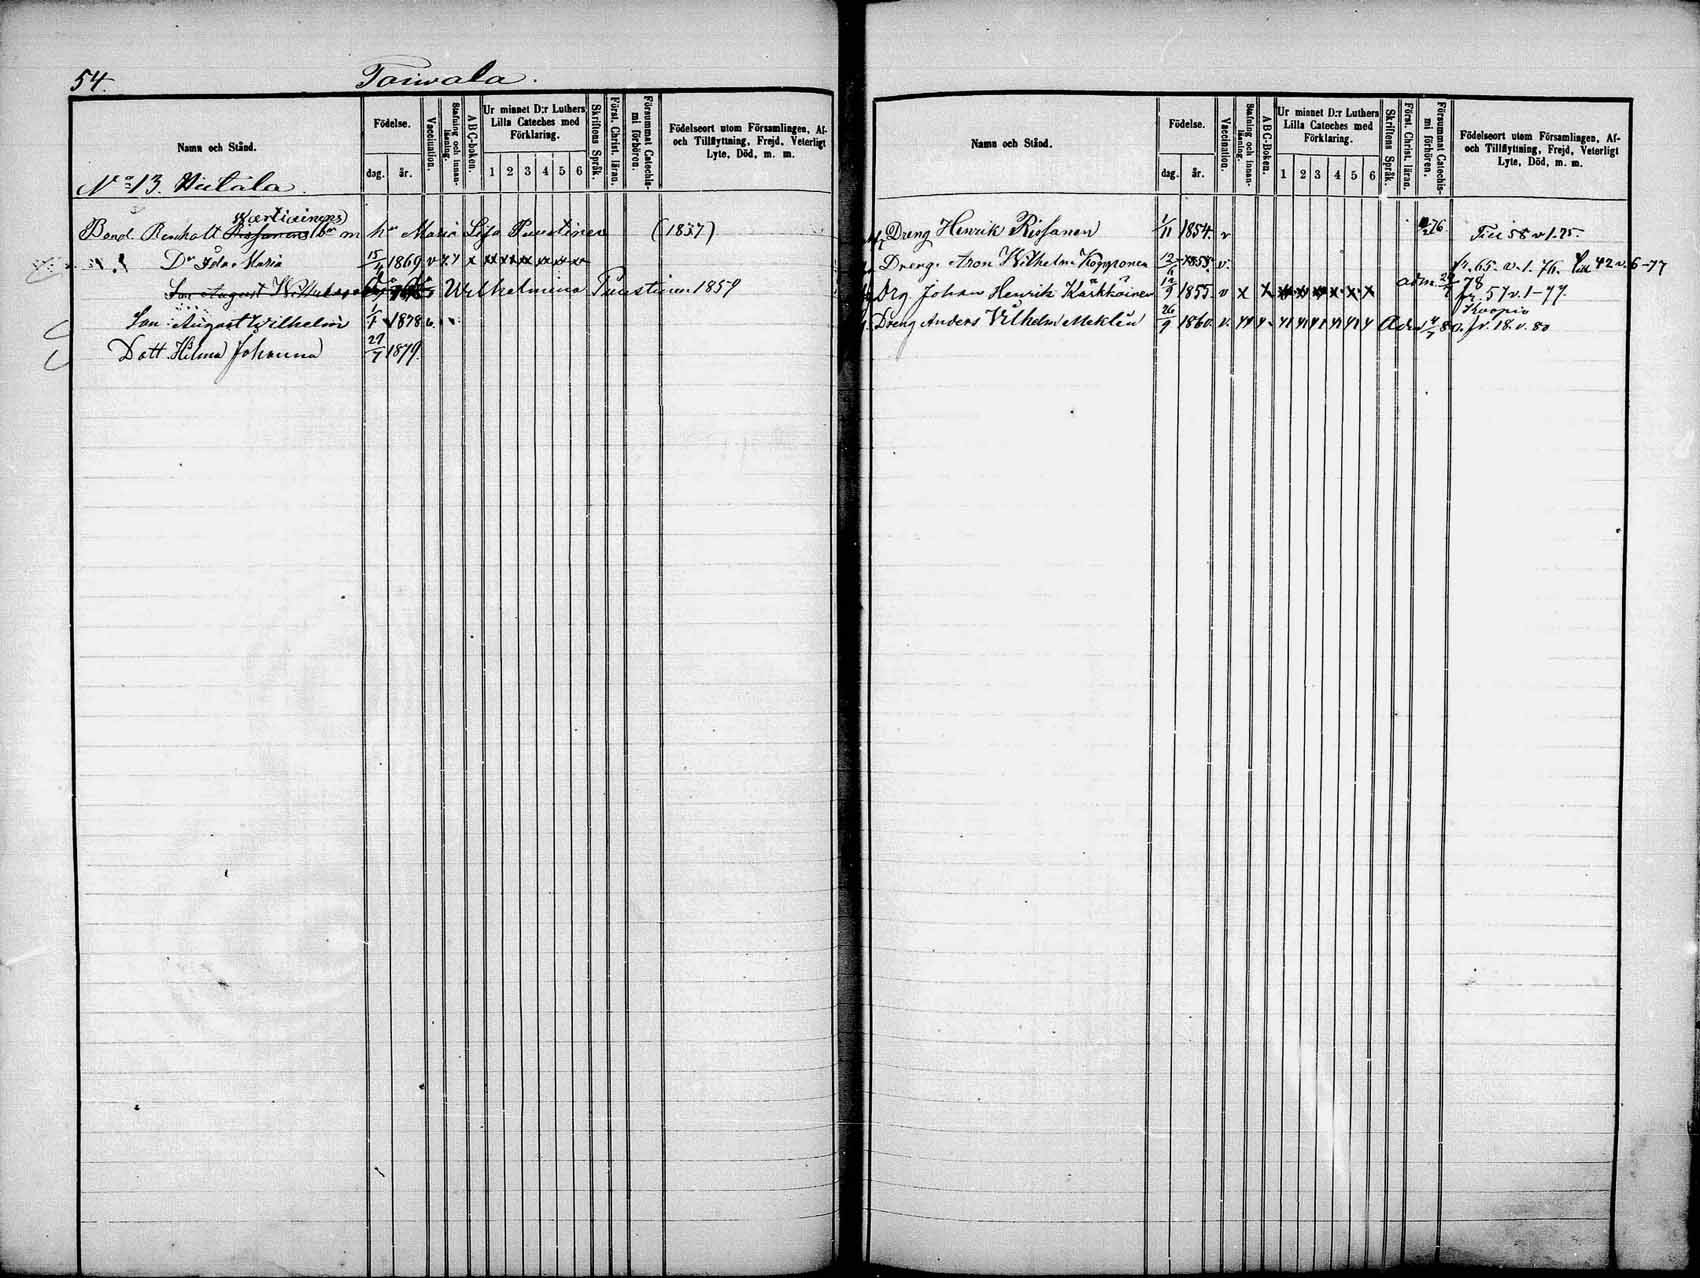 54. Toiwala.
Namn och Stånd.
Födelse.
dag. år.
Vaccination.
Stafning och innanläsning.
ABC-boken.
Ur minnet D:r Luthers Lilla Cateches med Förklaring.
1 2 3 4 5 6
Skriftens Språk.
Först. Christ. läran.
Försummat Catechismi förhören.
Födelseort utom Församlingen, Af- och Tillflyttning, Frejd, Veterligt Lyte, Död, m. m.
No 13.
Wartiainens
Bond. Renholt Rissanens br m hu Maria Lisa Puustinen (1837)
Dr Ida Maria 15/4 1869 v x x x x x x x x x
Son August Wilhelm Wilhelmina Puustinen 1859
Son August Wilhelm 1/1 1878 v.
Dott. Hilma Johanna 27/7 1879.
Namn och Stånd.
Födelse.
dag. år.
Vaccination.
Stafning och innanläsning.
ABC-Boken.
Ur minnet D:r Luthers Lilla Cateches med Förklaring.
1 2 3 4 5 6
Skriftens Språk.
Först. Christ. läran.
Försummat Catechismi förhören.
Födelseort utom Församlingen, Af- och Tillflyttning, Frejd, Veterligt Lyte, Död, m. m.
Dreng Henrik Rissanen 1/11 1854. v 76 Till 58 v 1.75
Dreng. Aron Wilhelm Kopponen 12/6 1858. v. fr. 65. v. 1. 76. Till 42 v. 6-77
Drg Johan Henrik Kärkkäinen 12/9 1855. v x x x x x x x x adm. 78 fr. 57 v. 1-77.
Kuopio
Dreng Anders Vilhelm Meklin 26/9 1860. v. fr. 18. v. 80